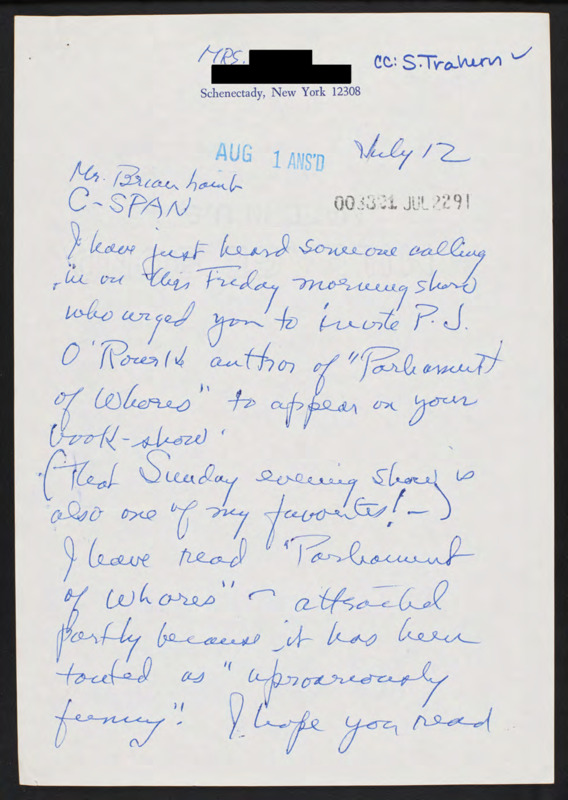 MRS.
cc: S. Trahern ✓
Schenectady, New York 12308
AUG 1 ANS'D
July 12
003331 JUL 22 91
Mr. Brian Lamb
C-SPAN
I have just heard someone calling
in on this Friday morning show
who urged you to invite P. J.
O'Rourke author of "Parliament
of Whores" to appear on your
book-show.
(That Sunday evening show is
also one of my favorites! -)
I have read "Parliament
of Whores" - attracted
partly because it has been
touted as "uproariously
funny". I hope you read